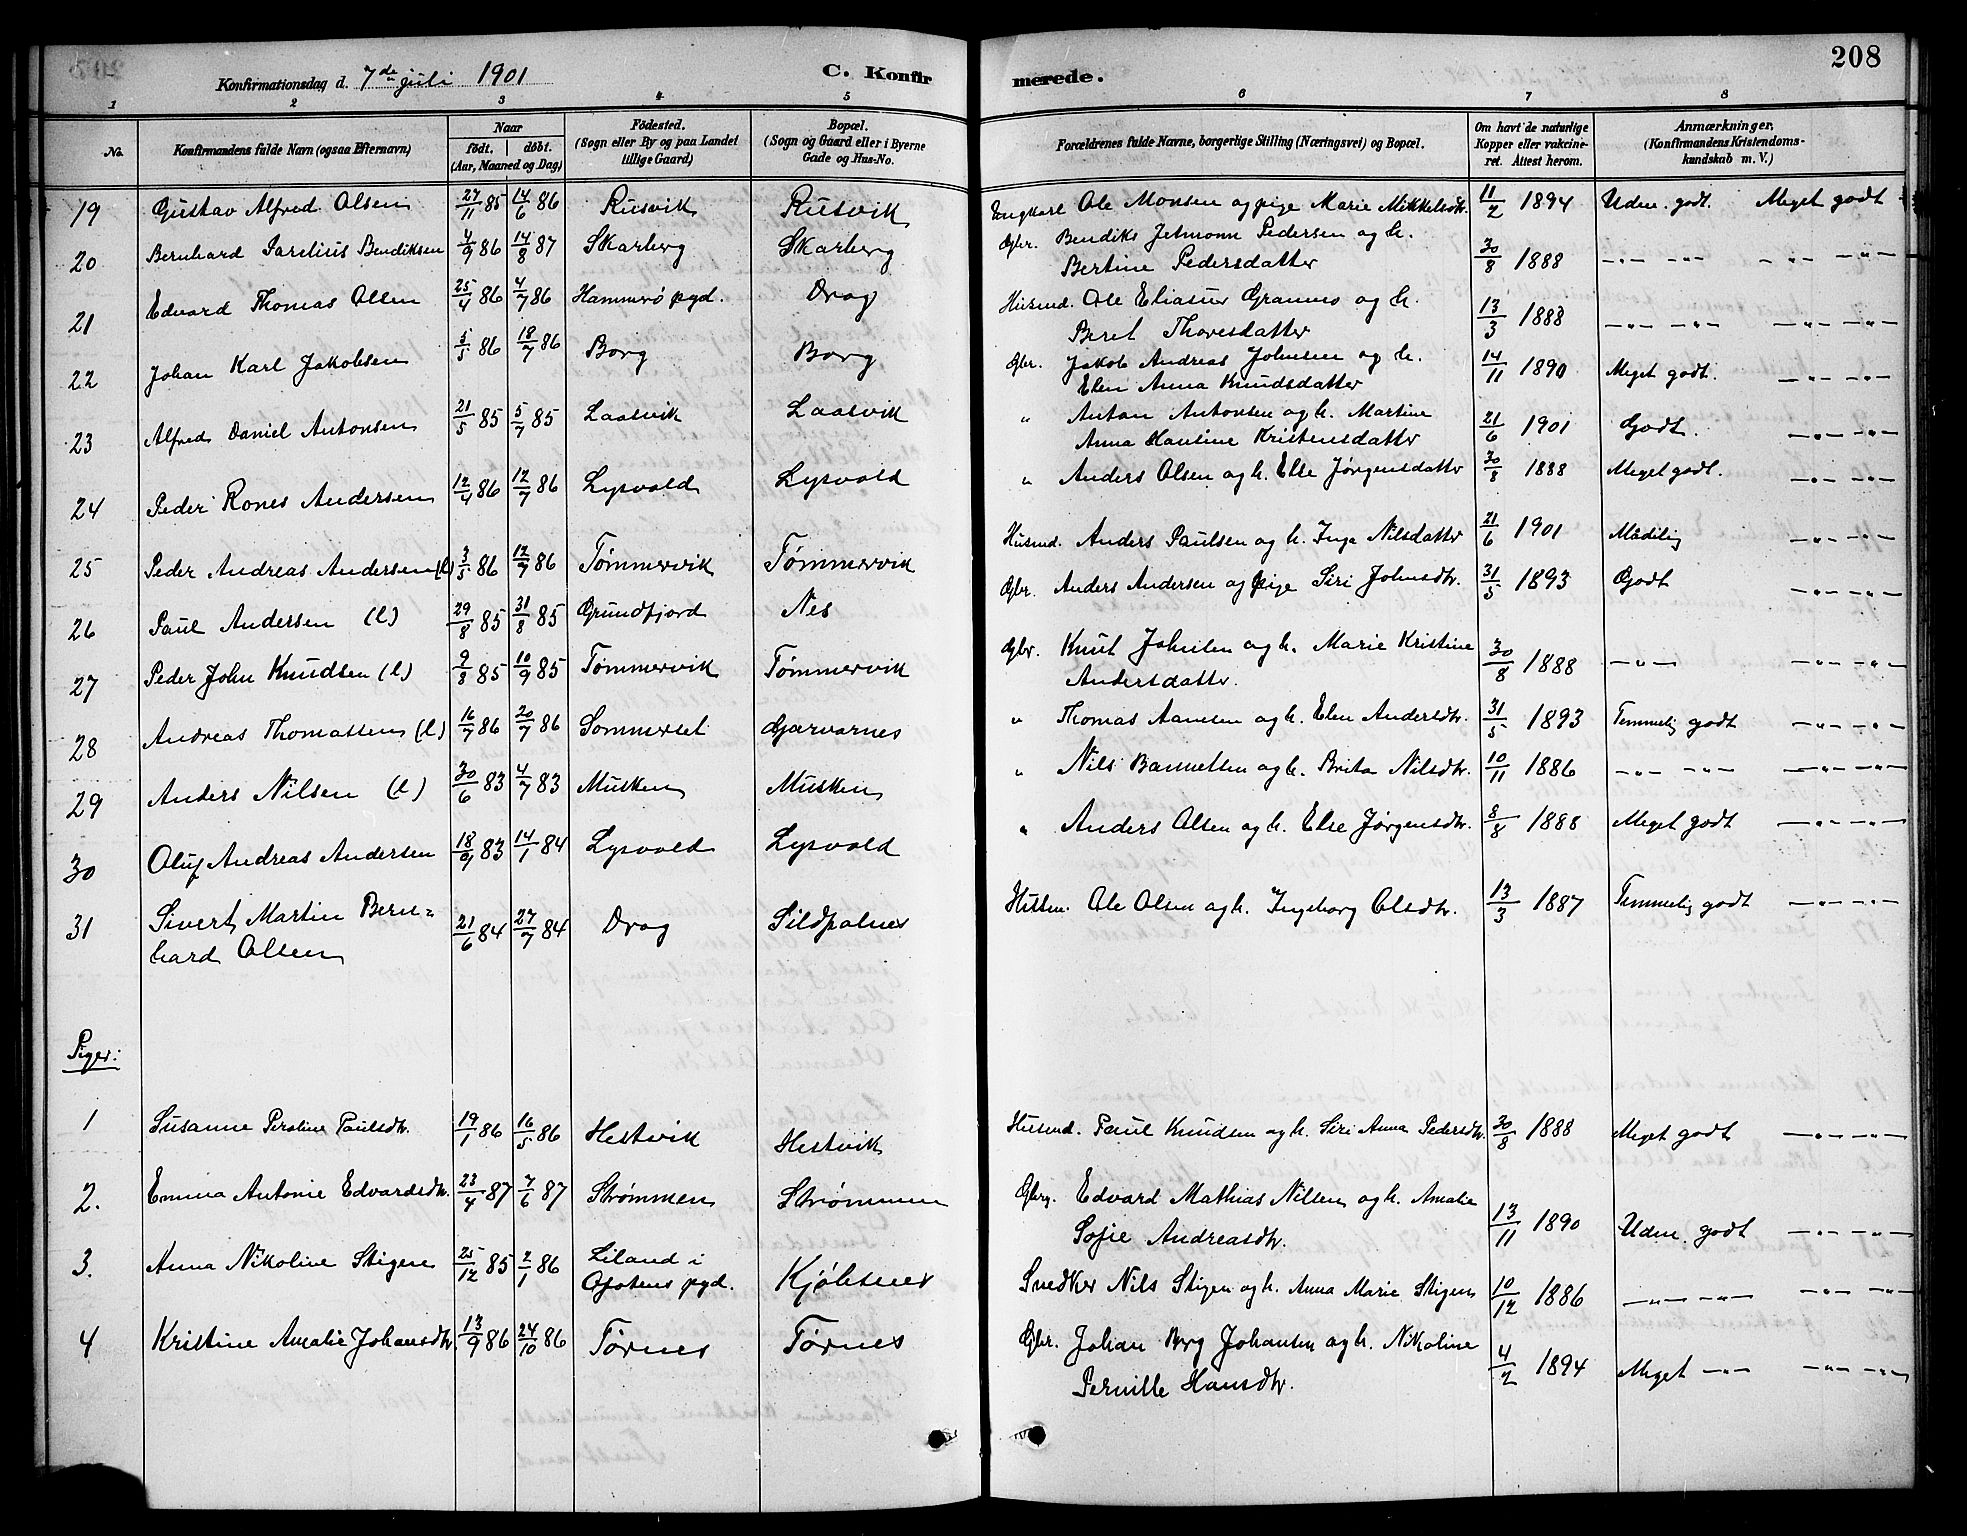 208
Konfirmationsdag d. 7de juli 1901
C. Konfirmerede.
1 2 3 4 5 6 7 8
No.
Konfirmandens fulde Navn (ogsaa Efternavn)
Naar
født. døbt.
(Aar, Maaned og Dag)
Fødested.
(Sogn eller By og paa Landet
tillige Gaard)
Bopæl.
(Sogn og Gaard eller i Byerne
Gade og Hus-No.
Forældrenes fulde Navne, borgerlige Stilling (Næringsvei) og Bopæl.
Om havt de naturlige
Kopper eller vakcine-
ret. Attest herom.
Anmærkninger.
(Konfirmandens Kristendoms-
kundskab m. V.)
19 Gustav Alfred Olsen 27/11 85 14/6 86 Rusvik Rusvik Ungkarl Ole Monsen og pige Marie Mikkelsdtr. 11/2 1894 Udm. godt. Meget godt
20 Bernhard Parelius Bendiksen 4/9 86 14/8 87 Skarberg Skarberg Gbr. Bendiks Jetmonn Pedersen og h.
Bertine Pedersdatter 30/8 1888 —„— —„— —„— —„—
21 Edvard Thomas Olsen 25/4 86 4/7 86 Hammerø pgd. Drag Husmd. Ole Eliasen Grannes og h.
Beret Thoresdatter 13/3 1888 —„— —„— —„— —„—
22 Johan Karl Jakobsen 3/5 86 18/7 86 Borg Borg Gbr. Jakob Andreas Johnsen og h.
Elen Anna Knudsdatter 14/11 1890 Meget godt. —„— —„—
23 Alfred Daniel Antonsen 21/5 85 5/7 85 Laasvik Laasvik „ Anton Antonsen og h. Martine
Anna Hansine Kristensdatter 21/6 1901 Godt. —„— —„—
24 Peder Rones Andersen 12/4 86 12/7 86 Lysvold Lysvold „ Anders Olsen og h. Else Jørgensdatter 30/8 1888 Meget godt. —„— —„—
25 Peder Andreas Andersen (l) 3/5 86 12/7 86 Tømmervik Tømmervik Husmd. Anders Paulsen og h. Inga Nilsdatter 21/6 1901 Mådelig —„— —„—
26 Paul Andersen (l) 29/8 85 31/8 85 Grundfjord Nes Gbr. Anders Andersen og pige Siri Johnsdtr. 31/5 1893 Godt —„— —„—
27 Peder John Knudsen (l) 9/8 85 10/9 85 Tømmervik Tømmervik Gbr. Knut Johnsen og h. Marie Kristine
Andersdatter. 30/8 1888 —„— —„— —„—
28 Andreas Thomassen (l) 16/7 86 20/7 86 Sommerset Gjærvarnes „ Thomas Aansen og h. Elen Andersdtr. 31/5 1893 Temmelig godt —„— —„—
29 Anders Nilsen (l) 30/6 83 4/7 83 Musken Musken „ Nils Bannetsen og h. Brita Nilsdtr. 10/11 1886 —„— —„— —„— —„—
30 Oluf Andreas Andersen 18/9 83 14/1 84 Lysvold Lysvold „ Anders Olsen og h. Else Jørgensdtr. 8/8 1888 Meget godt —„— —„—
31 Sivert Martin Bern=
hard Olsen 21/6 84 27/7 84 Drag Sildpolnes Ole Olsen og h. Ingeborg Olsdtr. 13/3 1887 Temmelig godt —„— —„—
Piger:
1 Susanne Peroline Paulsdtr. 19/1 86 16/5 86 Hestvik Hestvik Husmd. Paul Knudsen og h. Siri Anna Pedersdtr. 30/8 1888 Meget godt —„— —„—
2. Emma Antonie Edvardsdtr. 23/4 87 7/6 87 Strømmen Strømmen Gbrg. Edvard Mathias Nilsen og h. Amalie
Sofie Andreasdtr. 13/11 1890 Udm. godt —„— —„—
3. Anna Nikoline Stigen 25/12 85 2/1 86 Liland i
Ofotens pgd. Kjøbsnes Snedker Nils Stigen og h. Anna Marie Stigen 10/12 1886 —„— —„— —„— —„—
4 Kristine Amalie Johansdtr. 13/9 86 24/10 86 Tørnes Tørnes Gbr. Johan Berg Johansen og h. Nikoline
Pernille Hansdtr. 4/2 1894 Meget —„— —„— —„—